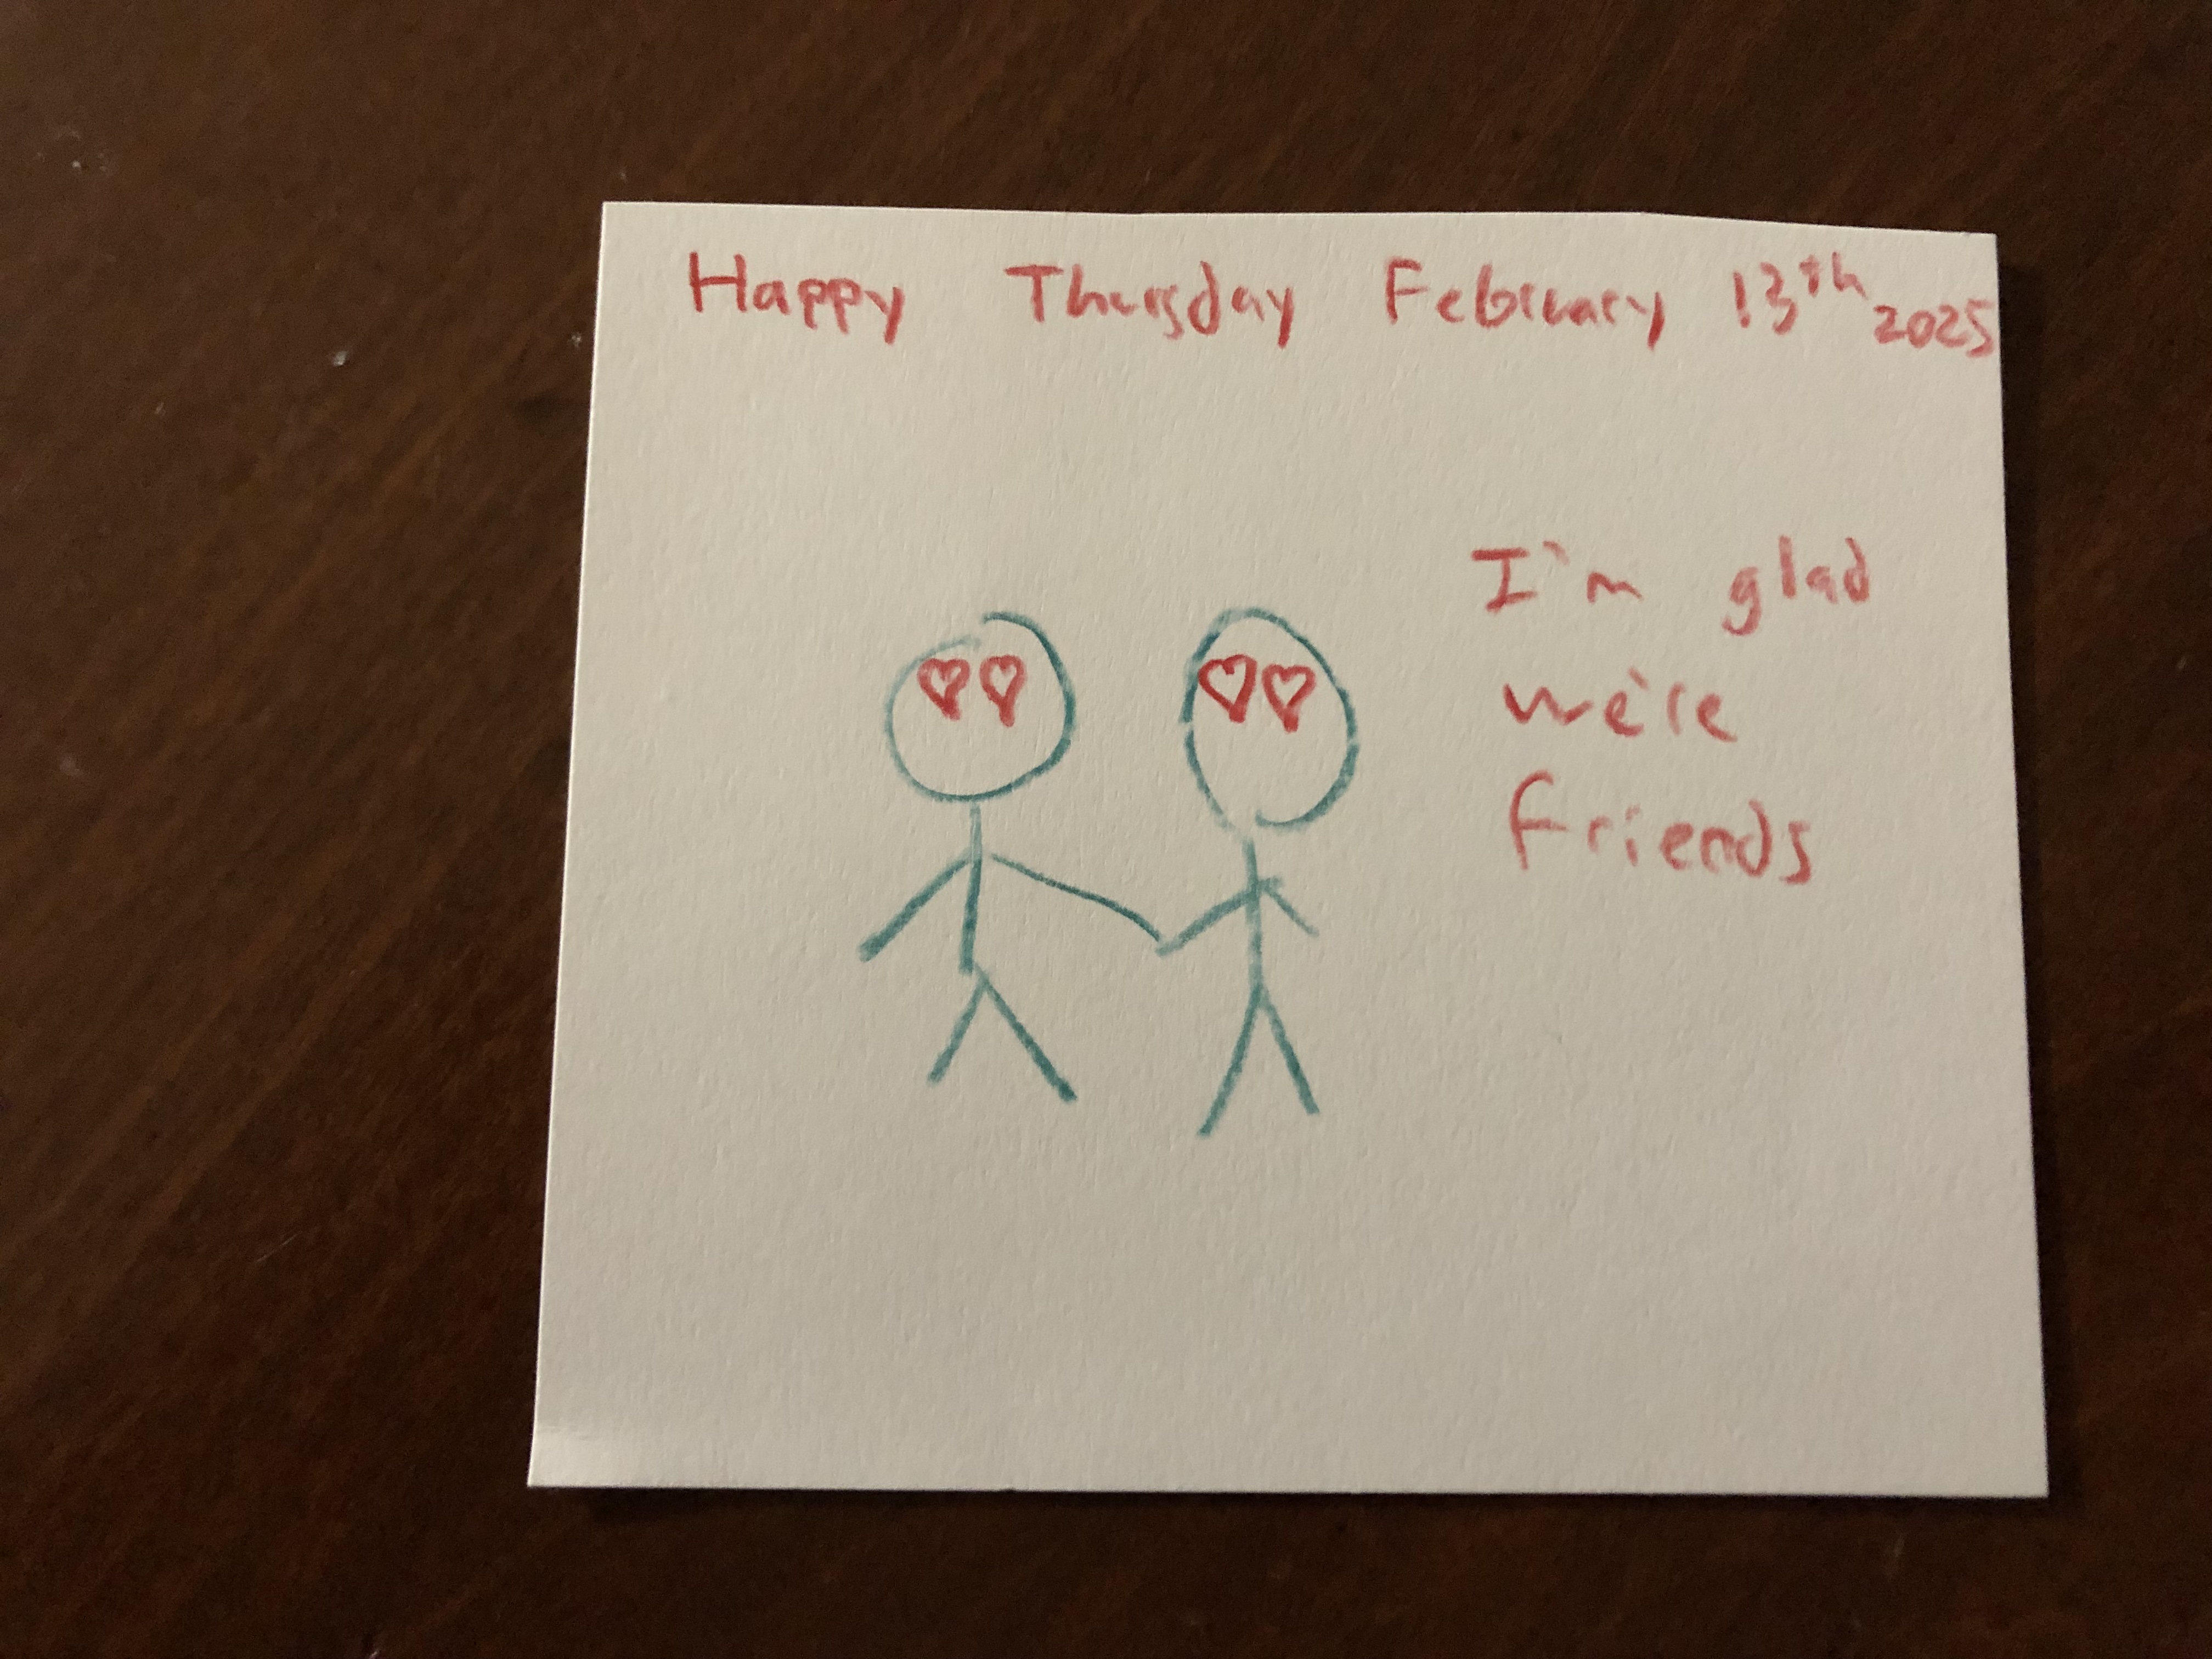 Happy Thursday February 13th 2025
I'm glad
we're
friends